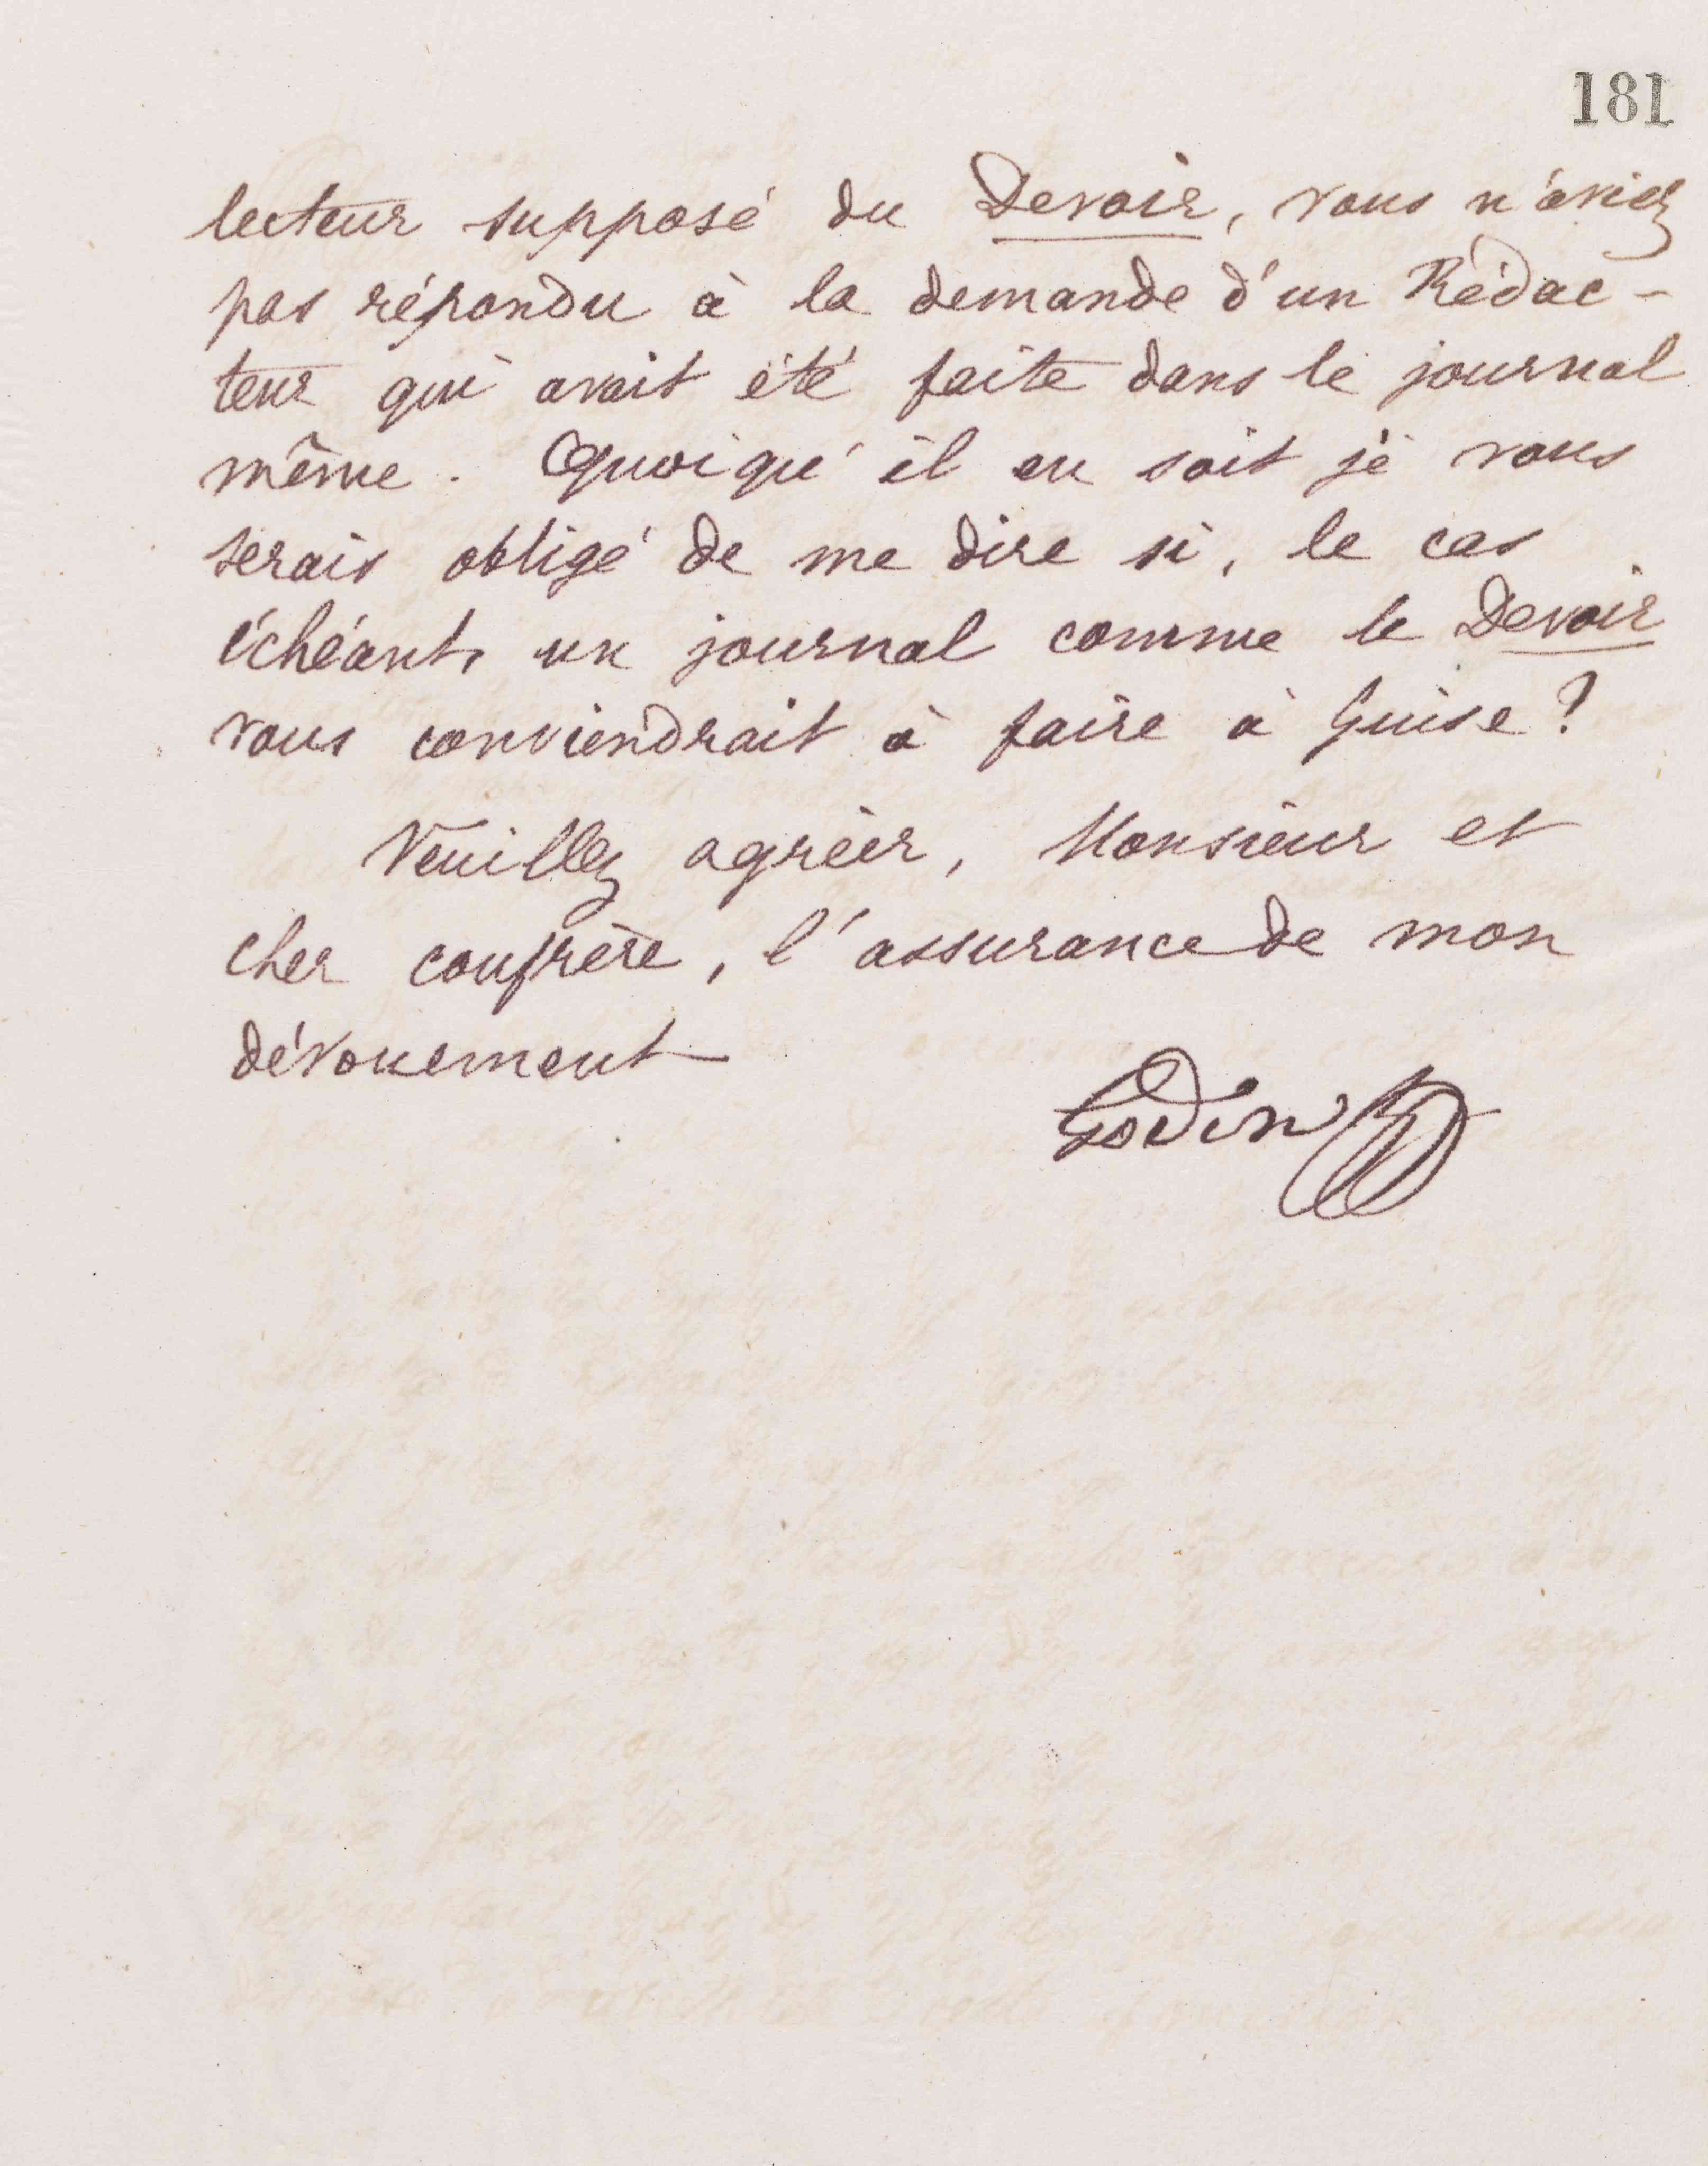 181
lecteur supposé du Devoir, vous n'aviez
pas répondu à la demande d'un Rédac-
teur qui avait été faite dans le journal
même. Quoiqu'il en soit je vous
serais obligé de me dire si, le cas
échéant, un journal comme le Devoir
vous conviendrait à faire à Guise ?
Veuillez agréer, Monsieur et
cher confrère, l'assurance de mon
dévouement
Godin